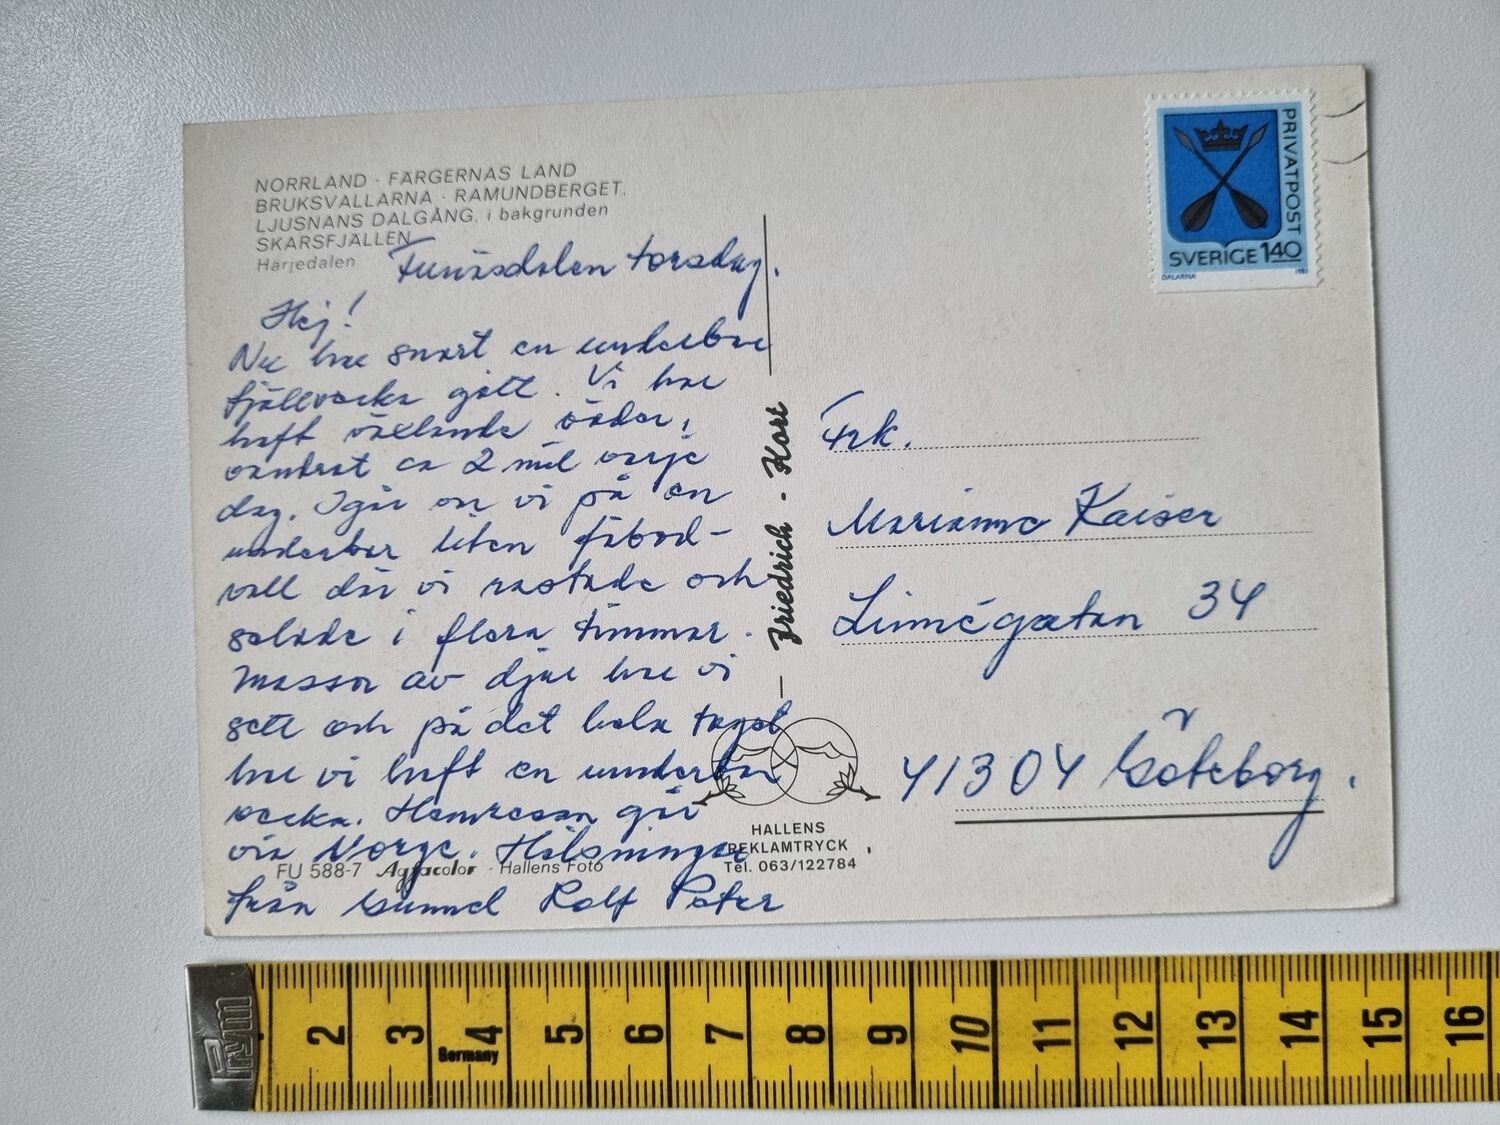 NORRLAND - FÄRGERNAS LAND
BRUKSVALLARNA - RAMUNDBERGET,
LJUSNANS DALGÅNG, i bakgrunden
SKARSFJÄLLEN
Härjedalen
Funäsdalen torsdag.
Hej!
Nu har snart en underbar
fjällvecka gått. Vi har
haft växlande väder,
vandrat ca 2 mil varje
dag. Igår var vi på en
underbar liten fäbod-
vall där vi rastade och
solade i flera timmar.
Massor av djur har vi
sett och på det hela taget
har vi haft en underbar
vecka. Hemresan går
via Norge. Hälsningar
från Gunnel Rolf Peter
FU 588-7 Agfacolor - Hallens Foto
Friedrich - Kort
HALLENS
REKLAMTRYCK
Tel. 063/122784
PRIVATPOST
SVERIGE 140
DALARNA 1981
Frk.
Marianne Kaiser
Linnégatan 34
41304 Göteborg.
Prym
2 3 4 5 6 7 8 9 10 11 12 13 14 15 16
Germany